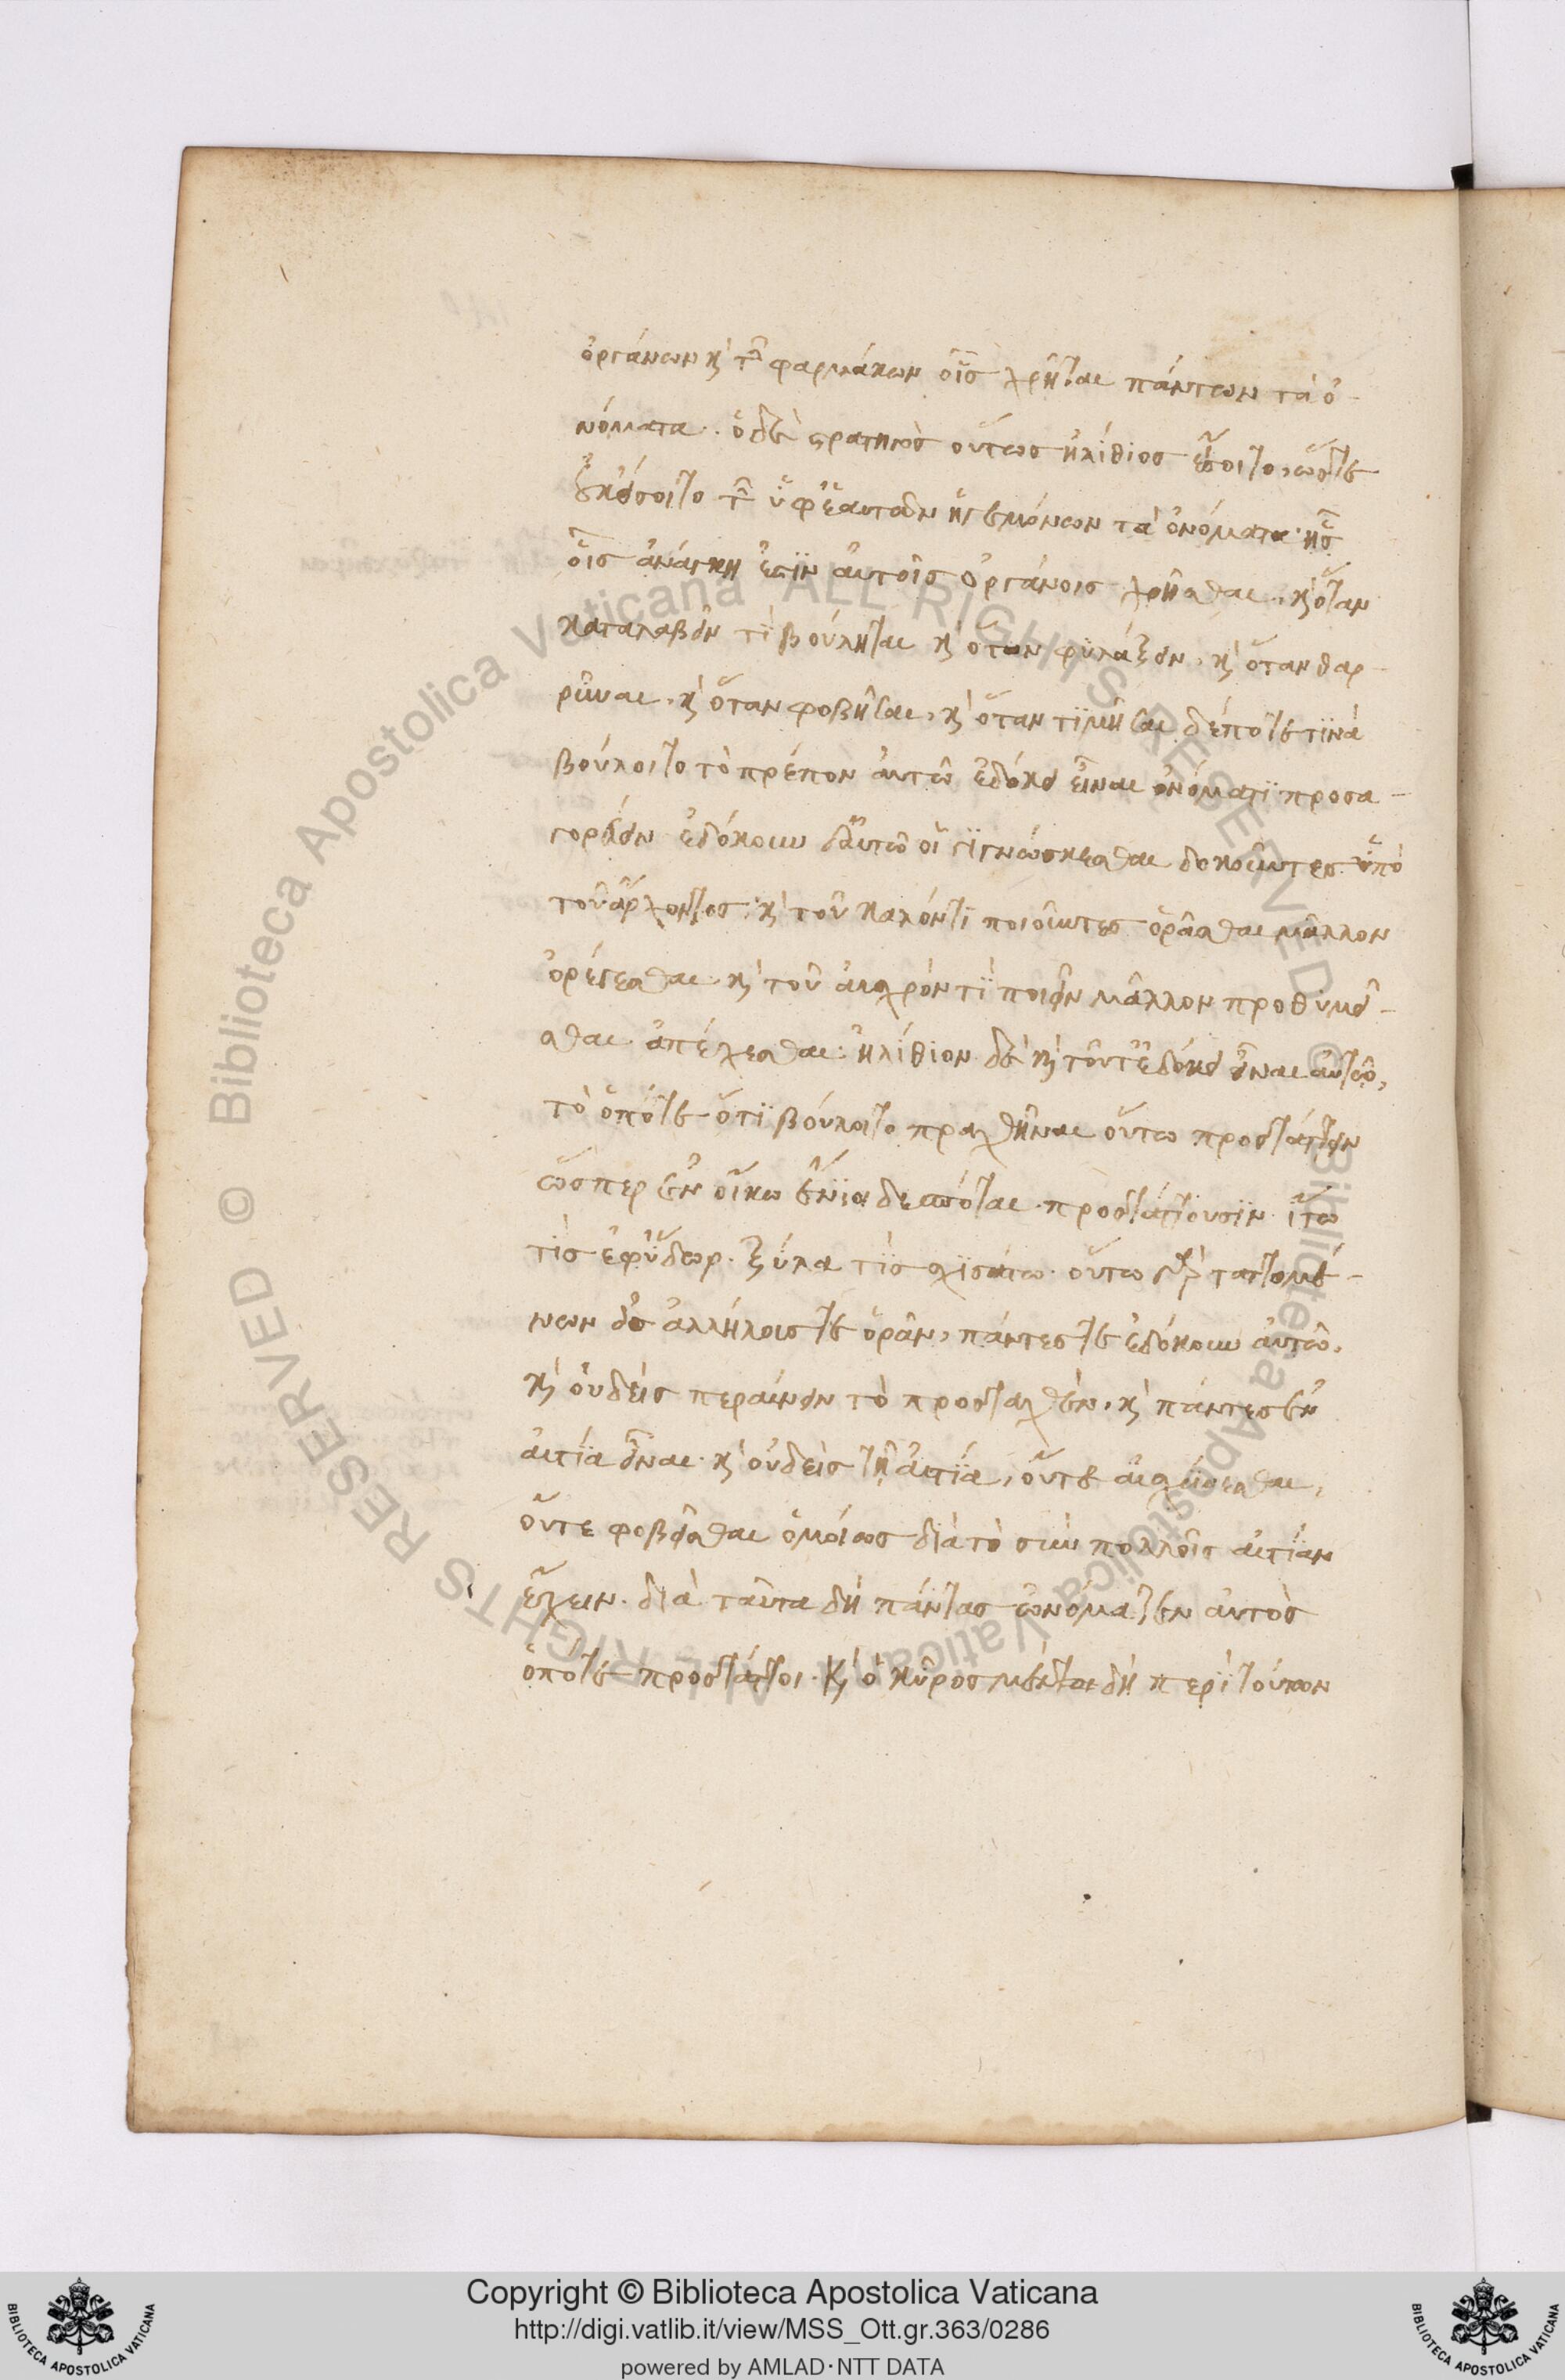 ὀργάνων κὶ τῶν φαρμάκων οἷς χρῆται πάντων τὰ ὀ-
νόματα. ὁ δὲ στρατηγὸς οὕτως ἠλίθιος ἔσοιτο, ὥστε
οὐκ εἴσοιτο τῶν ὑφ' ἑαυτῶν ἡγεμόνων τὰ ὀνόματα·
οἷς ἀνάγκη ἐστὶν αὐτοῖς ὀργάνοις χρῆσθαι. κὶ ὅταν
καταλαβεῖν τι βούληται κὶ ὅταν φυλάξειν. κὶ ὅταν θαρ-
ρῦναι. κὶ ὅταν φοβῆσαι. κὶ ὅταν τιμῆσαι δέποτε τινὰ
βούλοιτο τὸ πρέπον αὐτῶ ἐδόκει εἶναι ὀνόματι προσα-
γορεύειν ἐδόκουν δ' αὐτῶ οἱ γιγνώσκεσθαι δοκοῦντες ὑπὸ
τοῦ ἄρχοντος· κὶ τοῦ καλόντι ποιοῦντες ὁρᾶσθαι μᾶλλον
ὀρέγεσθαι. κὶ τοῦ αἰσχρόν τι ποιεῖν μᾶλλον προθυμεῖ-
σθαι ἀπέχεσθαι· ἠλίθιον δὲ κὶ τοῦτ' ἐδόκει εἶναι αὐτῶ,
τὸ ὁπότε ὅτι βούλοιτο πραχθῆναι οὕτω προστάττειν
ὥσπερ ἐν οἴκω ἔνιοι δεσπόται προστάττουσιν ἴτω
τὶς ἐφ' ὕδωρ. ξύλα τὶς σχισάτω. οὕτω γὰρ ταττομέ-
νων εἰς ἀλλήλους τε ὁρᾶν, πάντες τε ἐδόκουν αὐτῶ.
κὶ οὐδεὶς περαίνειν τὸ προσταχθέν. κὶ πάντες ἐν
αἰτία εἶναι. κὶ οὐδεὶς τῆ αἰτία, οὔτε αἰσχύνεσθαι,
οὔτε φοβεῖσθαι ὁμοίως διὰ τὸ σὺν πολλοῖς αἰτίαν
ἔχειν. διὰ ταῦτα δὴ πάντας ὠνόμαζεν αὐτὸς
ὁπότε προστάττοι. κὶ ὁ κῦρος μὲν δὴ περὶ τούτων
Copyright © Biblioteca Apostolica Vaticana
http://digi.vatlib.it/view/MSS_Ott.gr.363/0286
powered by AMLAD·NTT DATA